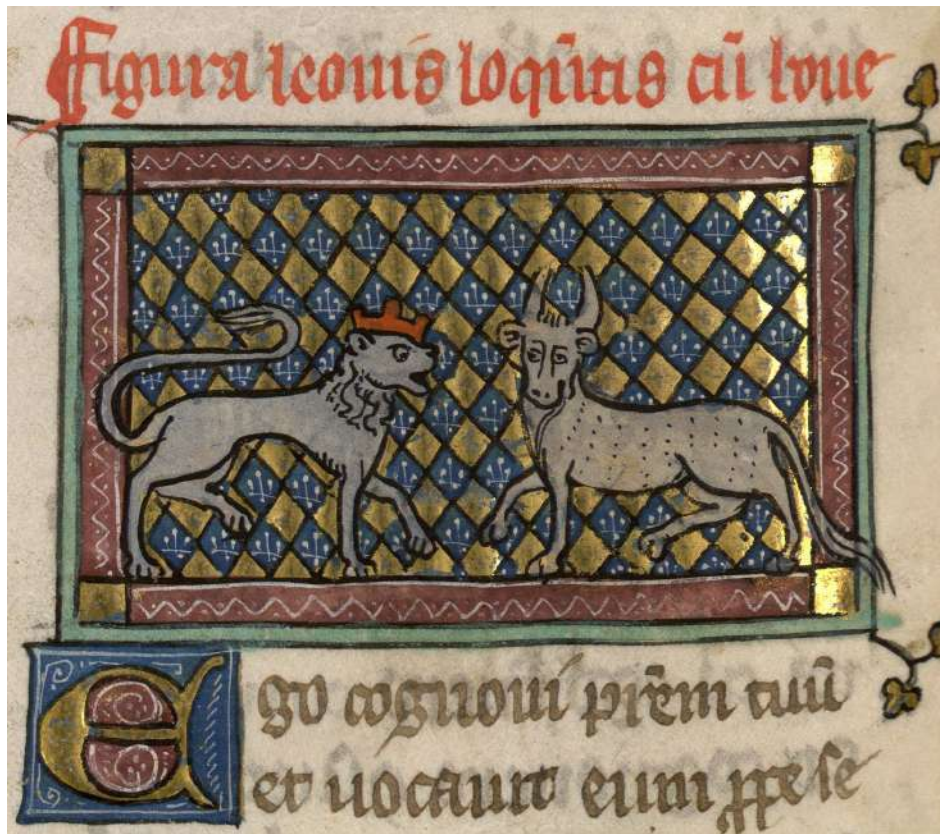 Figura leonis loqũtis cũ boue
Ego cognoui pr̃em tuũ
et uocauit eum ꝓpe se